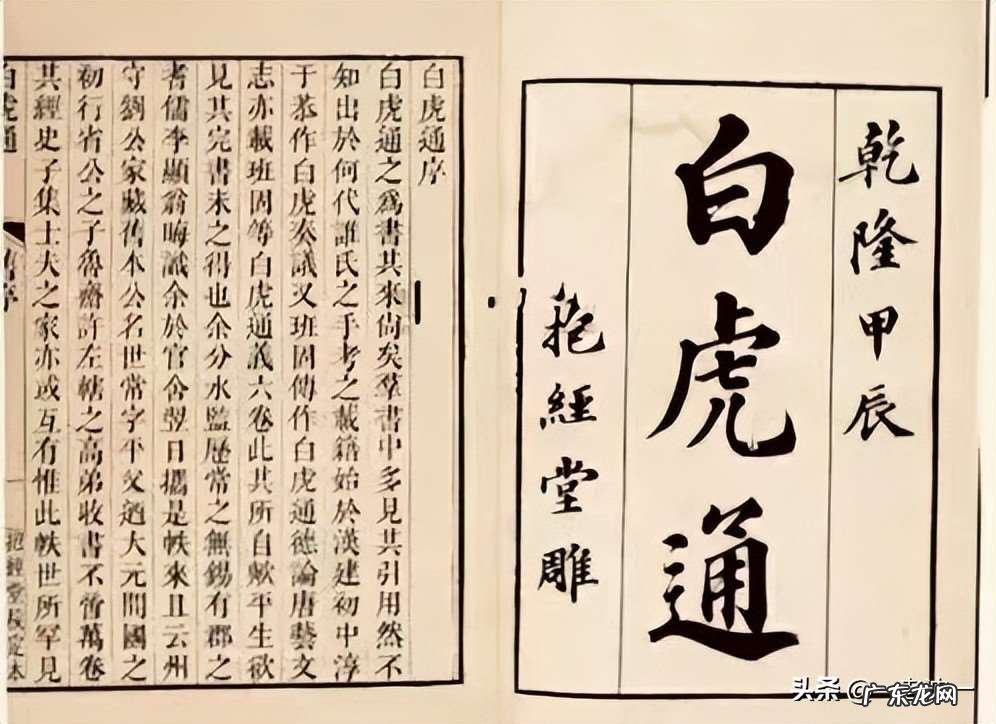 乾隆甲辰
白虎通
抱經堂雕
白虎通序
白虎通之爲書其來尚矣羣書中多見其引用然不
知出於何代誰氏之手考之載籍始於漢建初中淳
于恭作白虎奏議又班固傳作白虎通德論唐藝文
志亦載班固等白虎通義六卷此其所自歟平生欲
見其完書未之得也余分水監歷常之無錫有郡之
耆儒李顯翁晦識余於官舍翌日攜是帙來且云州
守劉公家藏舊本公名世常字平父迺大元開國之
初行省公之子魯齋許左轄之高弟收書不啻萬卷
其經史子集士夫之家亦或互有惟此帙世所罕見
白虎通
舊序
一
抱經堂校定本
头条
广东龙网